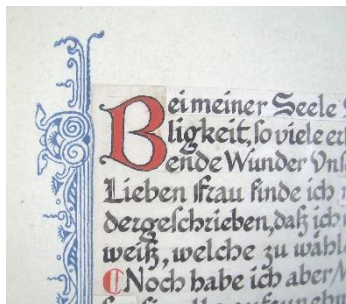 Bei meiner Seele
ligkeit, so viele
ende Wunder Vns
Lieben Frau finde ich
dergeschrieben, daß ich
weiß, welche zu wähl
Noch habe ich aber